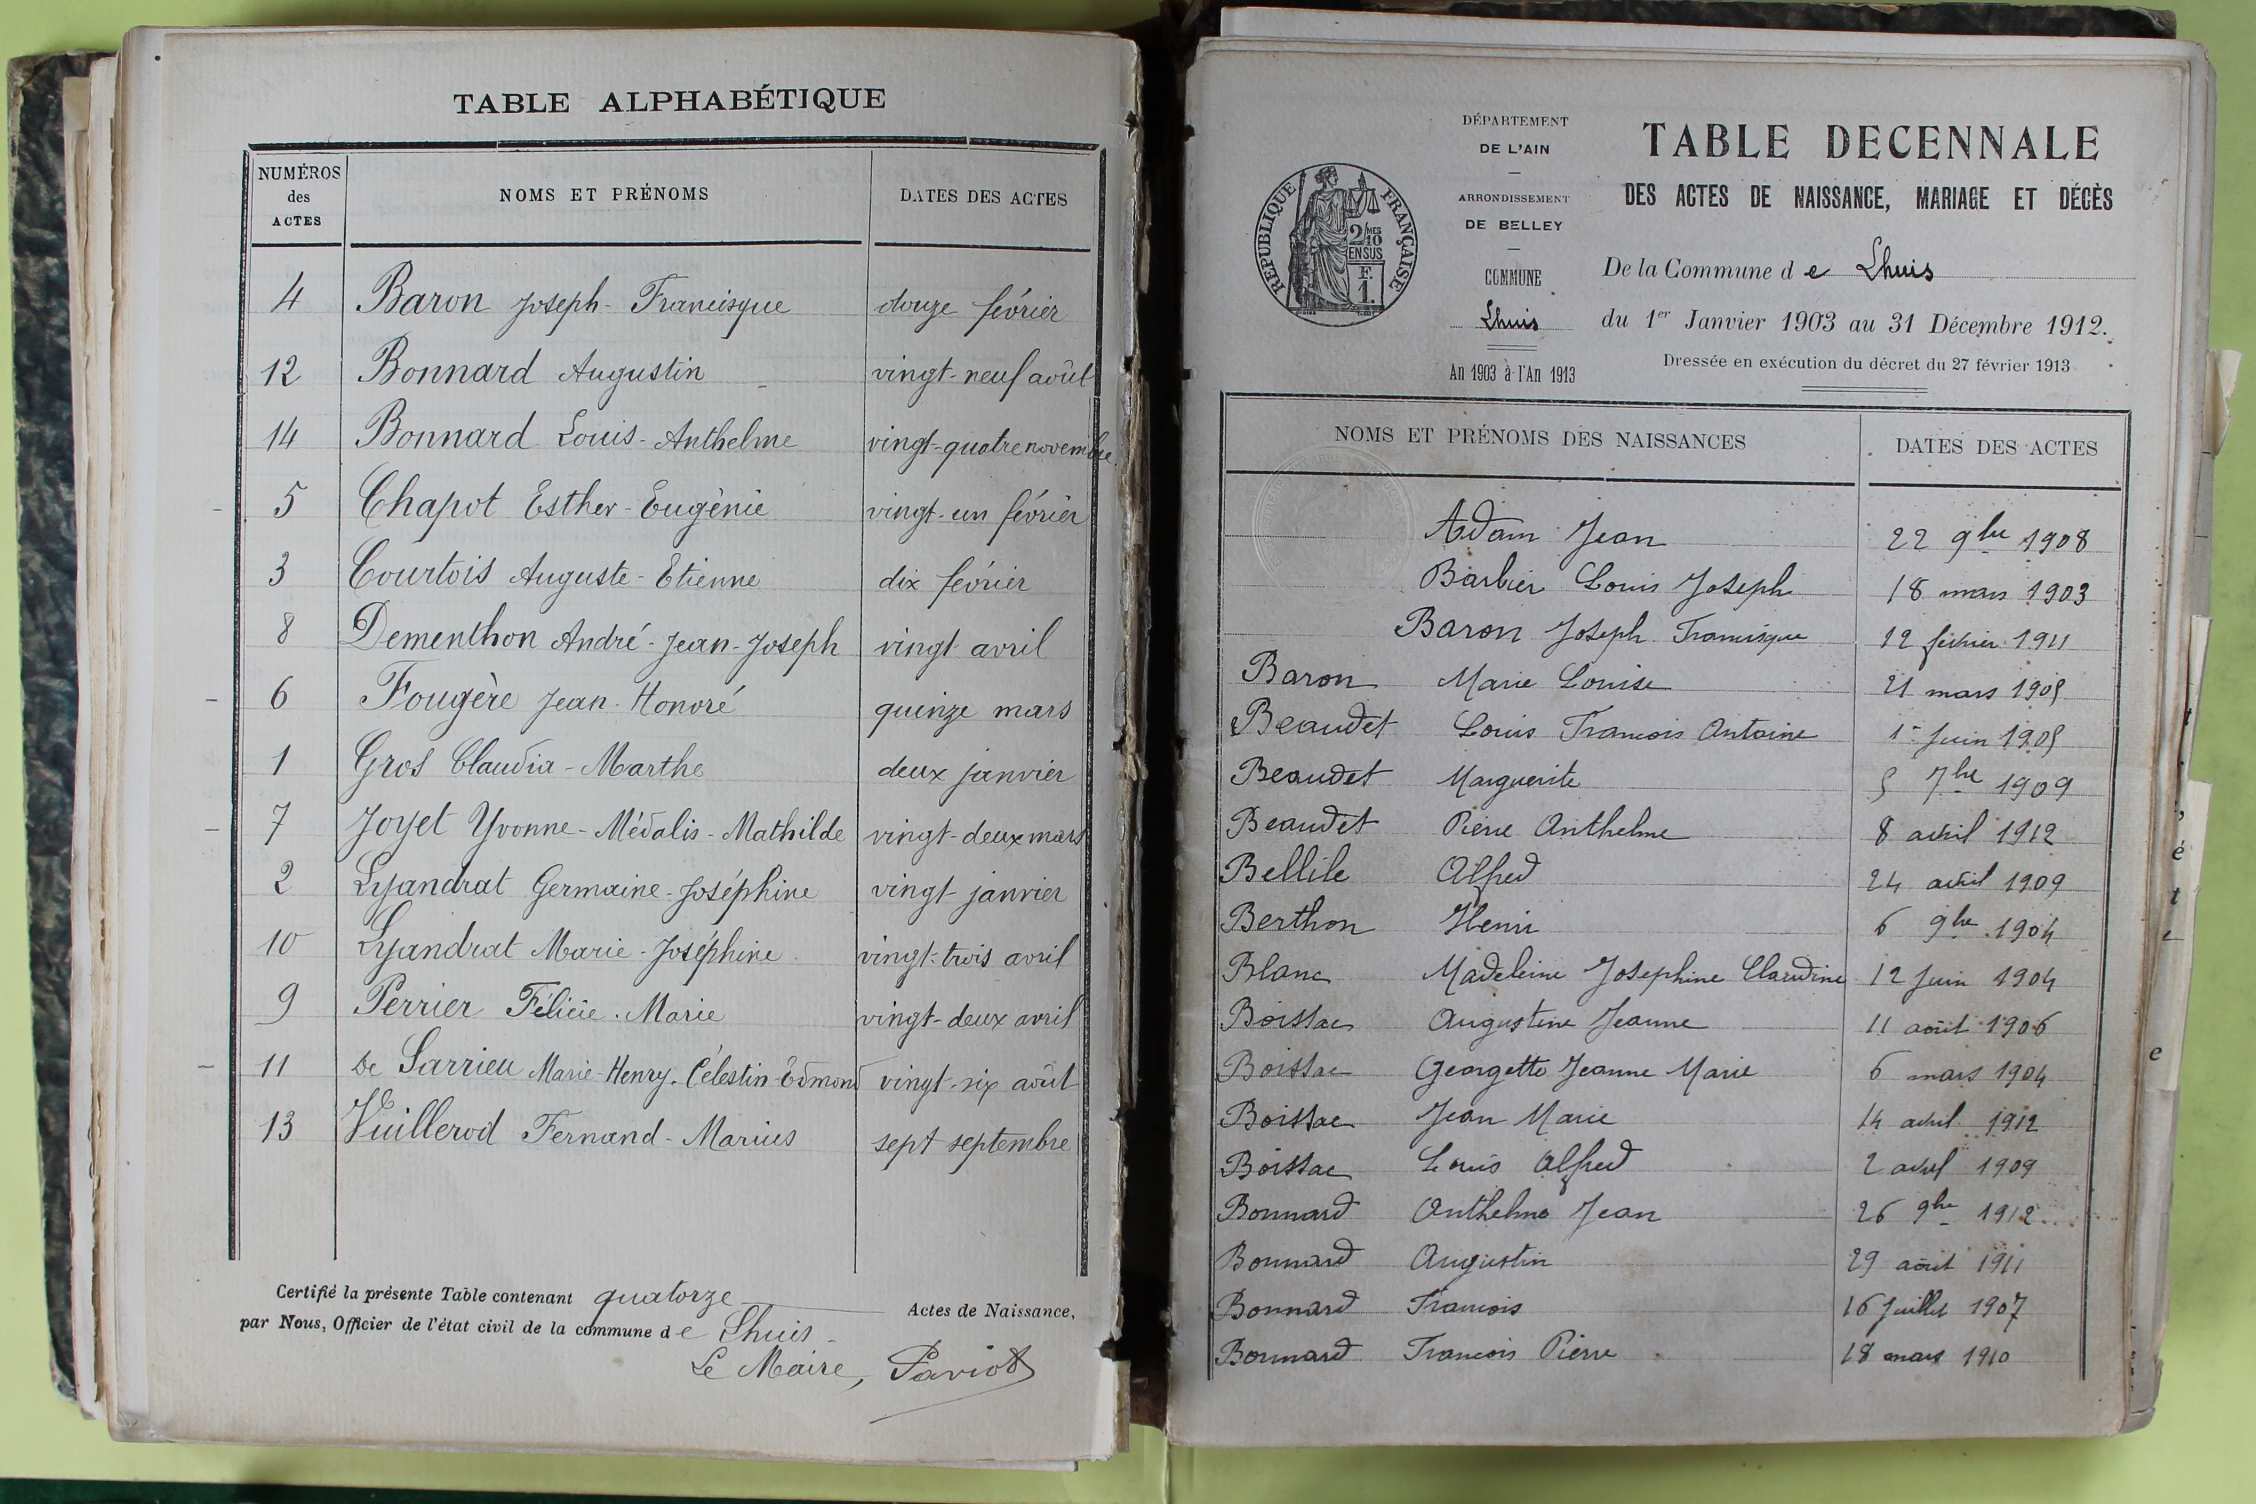 TABLE ALPHABÉTIQUE
NUMÉROS des ACTES NOMS ET PRÉNOMS DATES DES ACTES
4 Baron Joseph-Francisque douze février
12 Bonnard Augustin - vingt-neuf août
14 Bonnard Louis-Anthelme vingt-quatre novembre
5 Chapot Esther-Eugènie vingt-un février
3 Courtois Auguste-Etienne dix février
8 Dementhon André-Jean-Joseph vingt avril
6 Fougère Jean-Honoré quinze mars
1 Gros Claudia-Marthe deux janvier
7 Joyet Yvonne-Médalis-Mathilde vingt-deux mars
2 Lyandrat Germaine-Joséphine vingt janvier
10 Lyandrat Marie-Joséphine vingt-trois avril
9 Perrier Félicie-Marie vingt-deux avril
11 de Sarrieu Marie-Henry-Célestin-Edmond vingt-six août
13 Vuillerod Fernand-Marius sept septembre
Certifié la présente Table contenant quatorze Actes de Naissance,
par Nous, Officier de l'état civil de la commune de Lhuis
Le Maire, Paviot
DÉPARTEMENT
DE L'AIN
ARRONDISSEMENT
DE BELLEY
COMMUNE
Lhuis
An 1903 à l'An 1913
RÉPUBLIQUE FRANÇAISE
2 MES 10
EN SUS
F.
1.
TABLE DECENNALE
DES ACTES DE NAISSANCE, MARIAGE ET DÉCÈS
De la Commune de Lhuis
du 1er Janvier 1903 au 31 Décembre 1912.
Dressée en exécution du décret du 27 février 1913
NOMS ET PRÉNOMS DES NAISSANCES DATES DES ACTES
Adam Jean 22 9bre 1908
Barbier Louis Joseph 18 mars 1903
Baron Joseph Francisque 12 février 1911
Baron Marie Louise 21 mars 1905
Beaudet Louis François Antoine 1er Juin 1905
Beaudet Marguerite 5 7bre 1909
Beaudet Pierre Anthelme 8 avril 1912
Bellile Alfred 24 avril 1909
Berthon Henri 6 9bre 1904
Blanc Madeleine Josephine Claudine 12 Juin 1904
Boissac Augustine Jeanne 11 août 1906
Boissac Georgette Jeanne Marie 6 mars 1904
Boissac Jean Marie 14 avril 1912
Boissac Louis Alfred 2 avril 1909
Bonnard Anthelme Jean 26 9bre 1912
Bonnard Augustin 29 août 1911
Bonnard François 16 Juillet 1907
Bonnard François Pierre 18 mars 1910